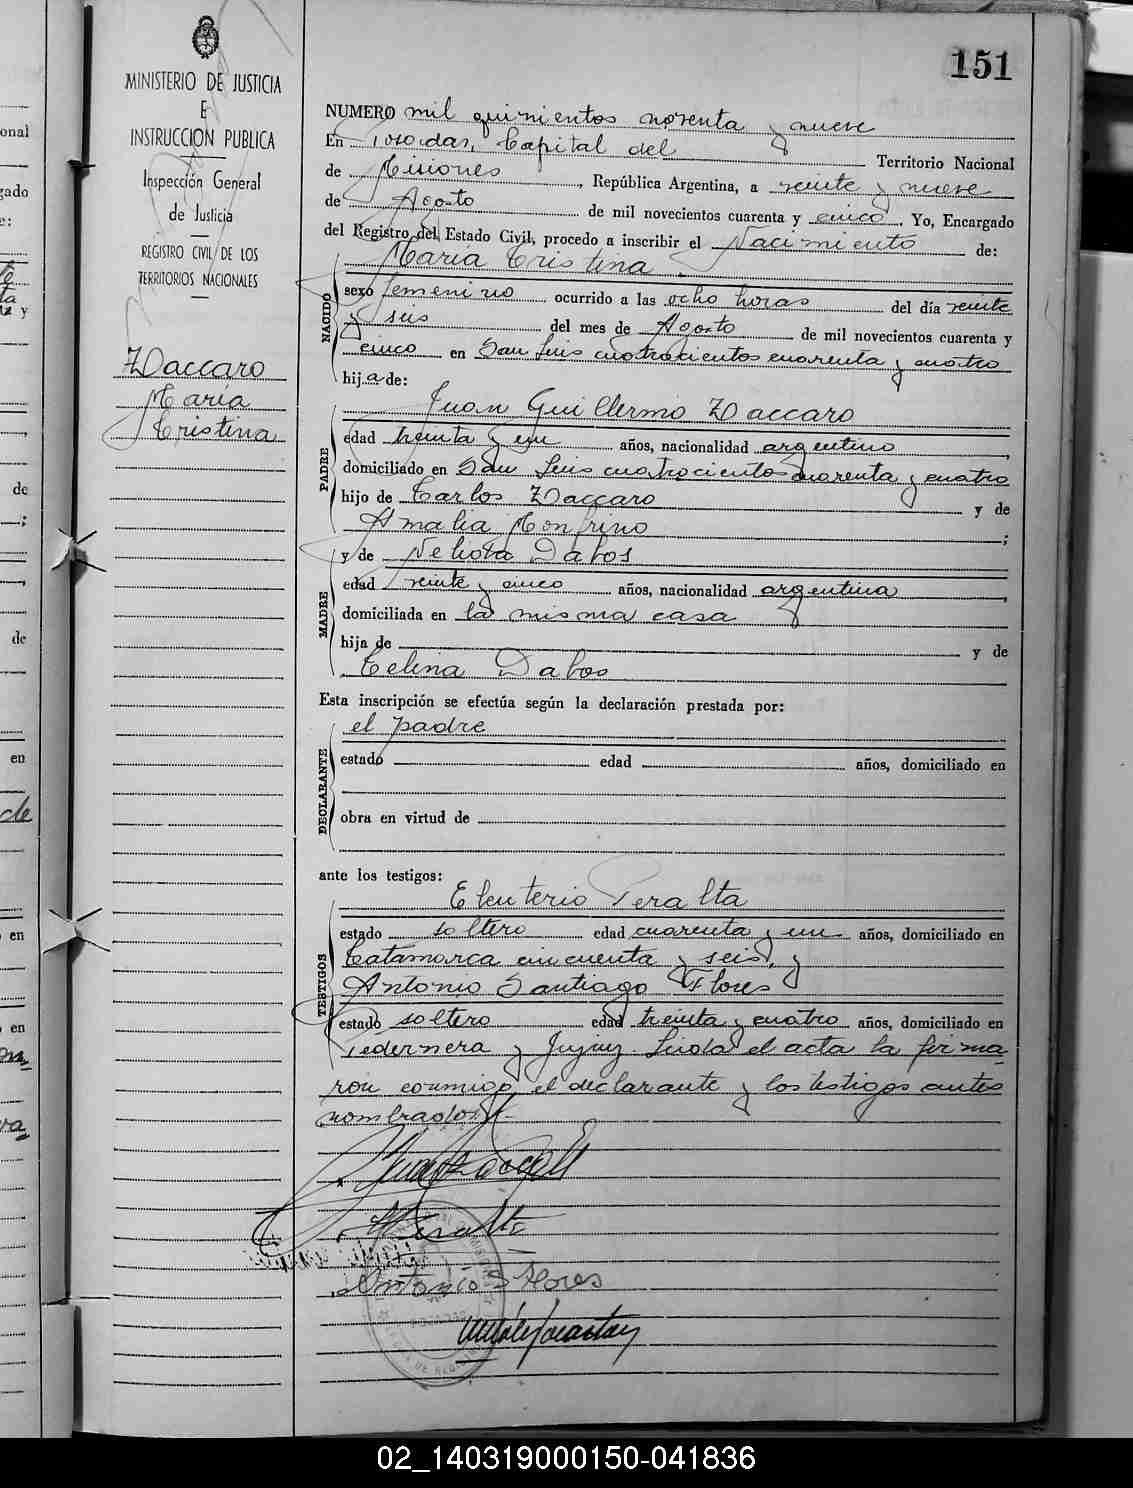 151
MINISTERIO DE JUSTICIA
E
INSTRUCCION PUBLICA
Inspección General
de Justicia
REGISTRO CIVIL DE LOS
TERRITORIOS NACIONALES
Daccaro
María
Cristina
NUMERO mil quinientos noventa y nueve
En Posadas, Capital del Territorio Nacional
de Misiones, República Argentina, a veinte y nueve
de Agosto de mil novecientos cuarenta y cinco, Yo, Encargado
del Registro del Estado Civil, procedo a inscribir el Nacimiento de:
María Cristina
NACIDO
sexo femenino ocurrido a las ocho horas del día veinte
y seis del mes de Agosto de mil novecientos cuarenta y
cinco en San Luis cuatrocientos cuarenta y cuatro
hija de:
Juan Guillermo Daccaro
PADRE
edad treinta y un años, nacionalidad argentino,
domiciliado en San Luis cuatrocientos cuarenta y cuatro
hijo de Carlos Daccaro y de
Amalia Monfrino;
y de Nelida Dabos
MADRE
edad veinte y cinco años, nacionalidad argentina,
domiciliada en la misma casa
hija de y de
Celina Dabos
Esta inscripción se efectúa según la declaración prestada por:
el padre
DECLARANTE
estado edad años, domiciliado en
obra en virtud de
ante los testigos:
Eleuterio Peralta
TESTIGOS
estado soltero edad cuarenta y un años, domiciliado en
Catamarca cincuenta y seis, y
Antonio Santiago Flores
estado soltero edad treinta y cuatro años, domiciliado en
Pedernera y Jujuy. Leida el acta la firma-
ron conmigo el declarante y los testigos antes
nombrados.
Peralta
Antonio S Flores
02_140319000150-041836